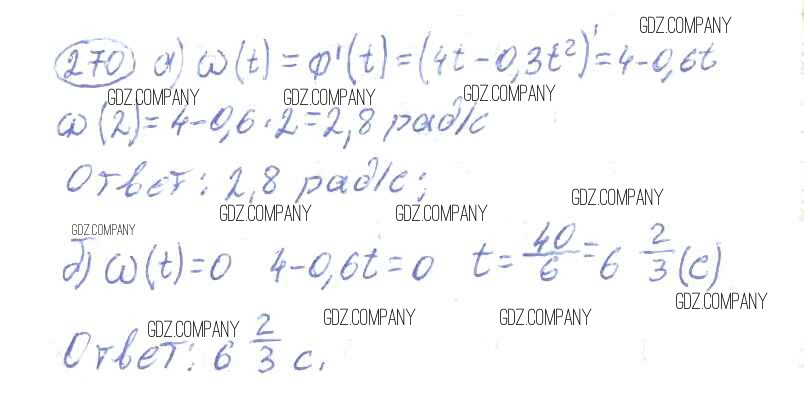 GDZ.COMPANY
270 а) ω(t) = φ'(t) = (4t - 0,3t²)' = 4 - 0,6t
GDZ.COMPANY GDZ.COMPANY GDZ.COMPANY
ω(2) = 4 - 0,6 · 2 = 2,8 рад/с
Ответ: 2,8 рад/с;
GDZ.COMPANY
GDZ.COMPANY GDZ.COMPANY
GDZ.COMPANY
б) ω(t) = 0 4 - 0,6t = 0 t = 40/6 = 6 2/3 (с)
GDZ.COMPANY
GDZ.COMPANY GDZ.COMPANY GDZ.COMPANY
Ответ: 6 2/3 с.